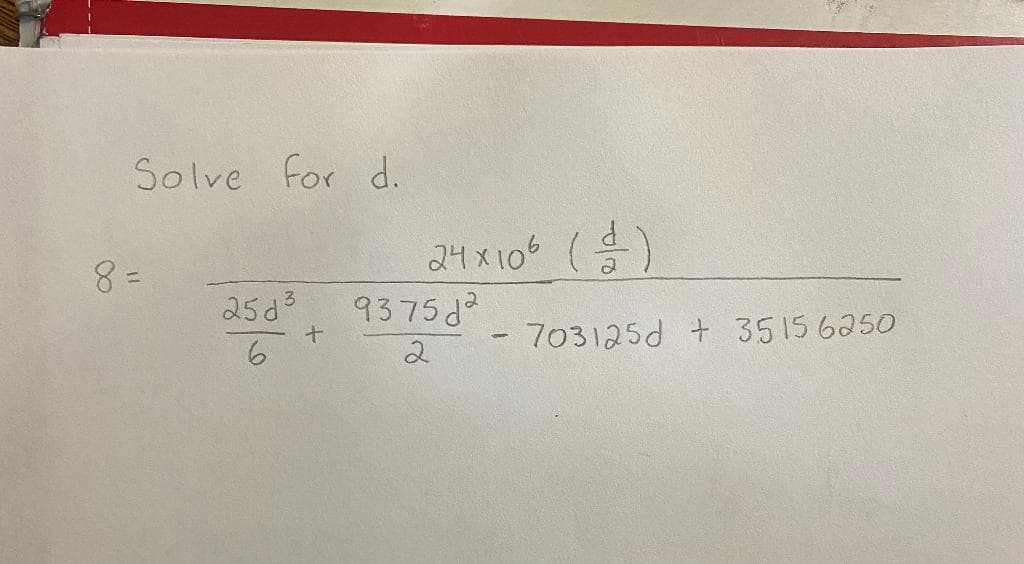 Solve for d.
8 = 24 x 10⁶ (d/2) / (25d³/6 + 9375d²/2 - 703125d + 35156250)